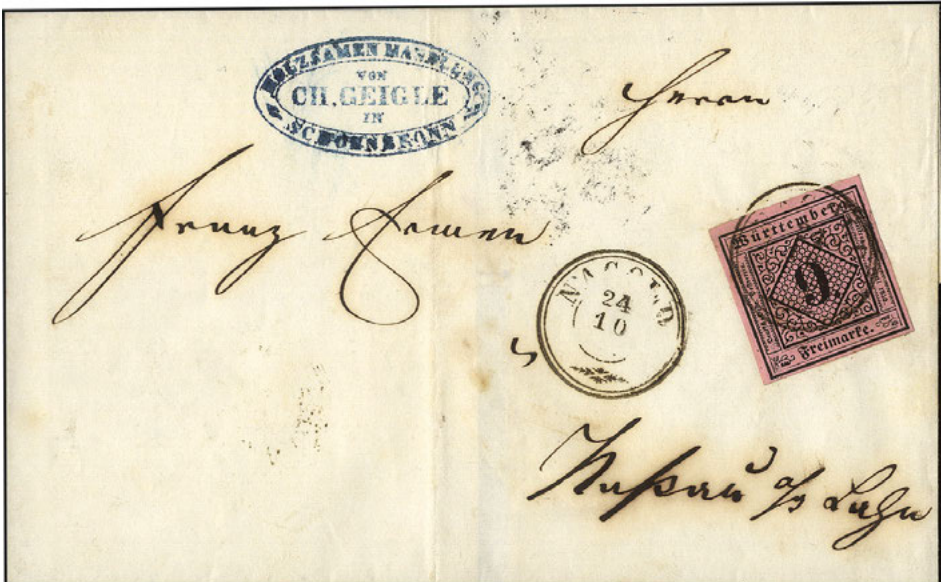 HOLZSAMEN HANDLUNG
VON
CH. GEIGLE
IN
SCHOENBRONN
Herrn
Franz
NAGOLD
24
10
Württemberg
9
Freimarke.
Naßau a/Lahn